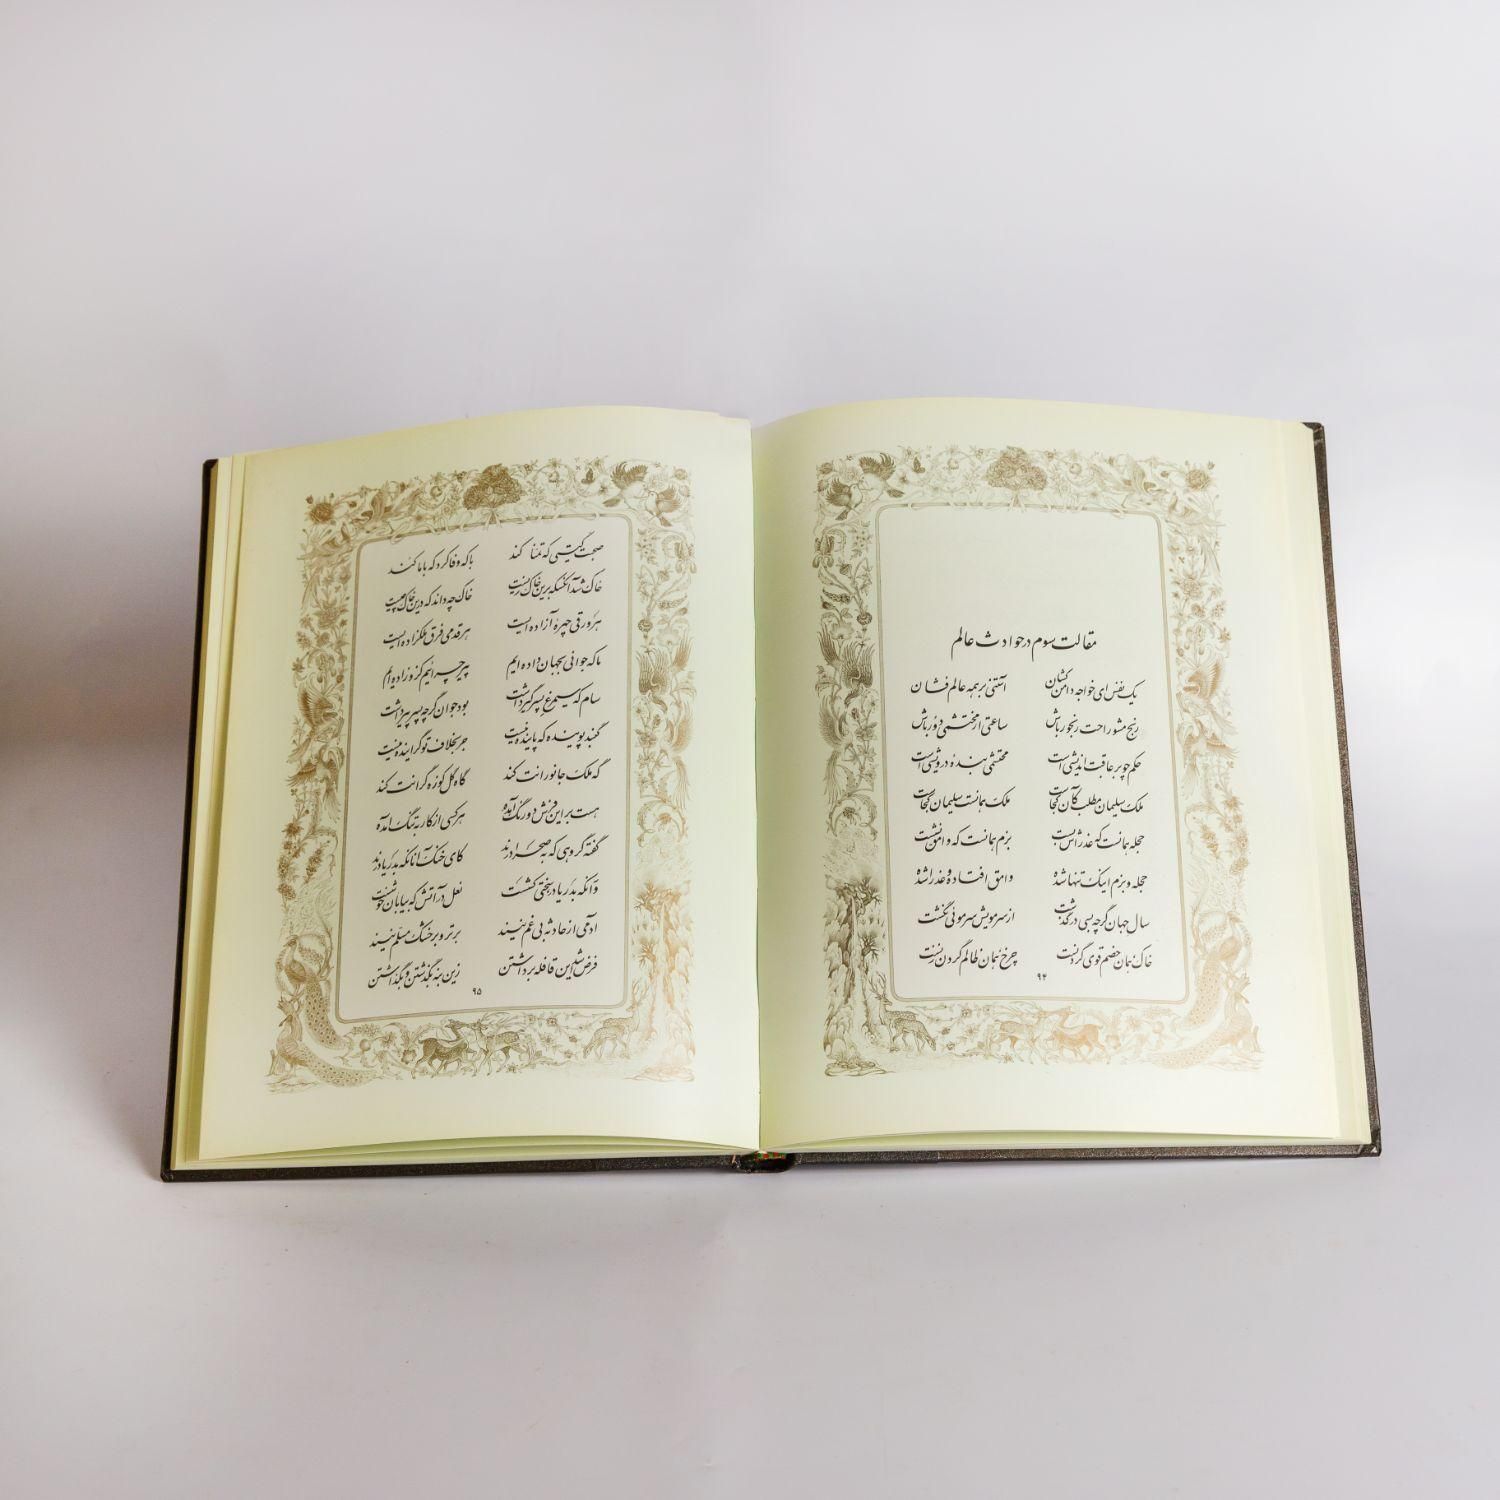 مقالت سوم در حوادث عالم
یک نفس ای خواجه دامن کشان آستنی بر همه عالم فشان
رنج مشو راحت رنجور باش ساعتی از محتشمی دور باش
حکم چو بر عاقبت اندیشی است محتشمی بندهٔ درویشی است
ملک سلیمان مطلب کان کجاست ملک همانست سلیمان کجاست
حجله همانست که عذراش بست بزم همانست که وامق نشست
حجله و بزم اینک تنها شده وامق افتاده و عذرا شده
سال جهان گرچه بسی درگذشت از سر مویش سر موئی نگشت
خاک همان خصم قوی گردنست چرخ همان ظالم گردن زنست
۹۴
صحبت گیتی که تمنا کند با که وفا کرد که با ما کند
خاک شد آنکسکه برین خاک زیست خاک چه داند که درین خاک چیست
هر ورقی چهرهٔ آزاده ایست هر قدمی فرق ملکزاده ایست
ما که جوانی بجهان داده ایم پیر چرائیم کزو زاده ایم
سام که سیمرغ پسر گیر داشت بود جوان گرچه پسر پیر داشت
گنبد پوینده که پاینده نیست جز بخلاف تو گراینده نیست
گه ملک جانورانت کند گاه گل کوزه گرانت کند
هست بر این فرش دو رنگ آمده هر کسی از کار به تنگ آمده
گفته گروهی که به صحرا درند کای خنک آنانکه بدریا درند
وانکه بدریا در سختی کشست نعل در آتش که بیابان خوشست
آدمی از حادثه بی غم نیند بر تر و بر خشک مسلم نیند
فرض شد این قافله برداشتن زین بنه بگذشتن و بگذاشتن
۹۵